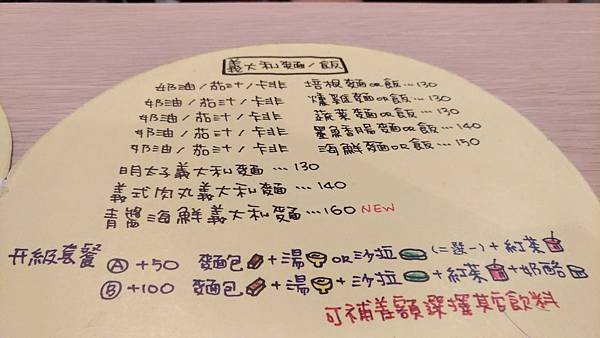 義大利麵/飯
奶油/茄汁/卡非 培根麵or飯…130
奶油/茄汁/卡非 燻雞麵or飯…130
奶油/茄汁/卡非 蔬菜麵or飯…130
奶油/茄汁/卡非 墨香腸麵or飯…140
奶油/茄汁/卡非 海鮮麵or飯…150
明太子義大利麵…130
義式肉丸義大利麵…140
青醬海鮮義大利麵…160 NEW
升級套餐
Ⓐ +50 麵包+湯or沙拉(二選一)+紅茶
Ⓑ +100 麵包+湯+沙拉+紅茶+奶酪
可補差額選擇其它飲料